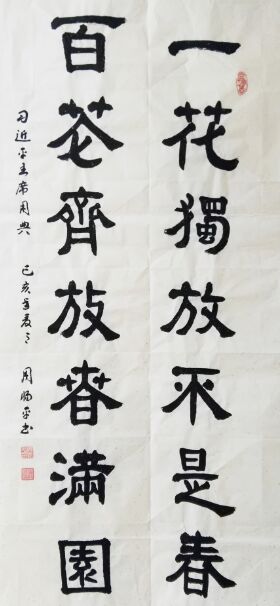 一花獨放不是春
百花齊放春滿園
习近平主席用典
己亥年夏
周
平书